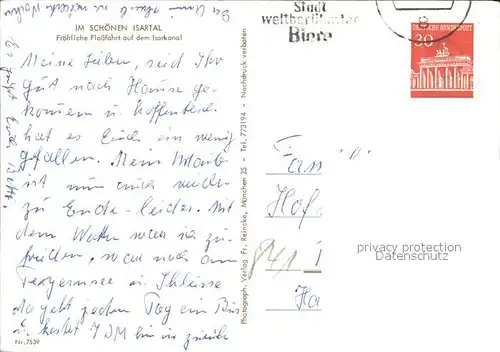 IM SCHÖNEN ISARTAL
Fröhliche Floßfahrt auf dem Isarkanal
Meine Lieben, seid Ihr
gut nach Hause ge-
kommen u. hoffentlich
hat es Euch ein wenig
gefallen. Mein Urlaub
ist nun auch wieder
zu Ende leider. Mit
dem Wetter war ich zu-
frieden, war noch am
Tegernsee in
da geht jeden Tag ein Bus
u. kostet 7 DM hin u. zurück
Es grüßt Euch
Nr. 7539
Photograph. Verlag Fr. Reincke, München 25 - Tel. 773194 - Nachdruck verboten
Stadt
weltberühmter
Biere
DEUTSCHE BUNDESPOST
30
Fam
Hof
841 I
Ha
privacy protection
Datenschutz